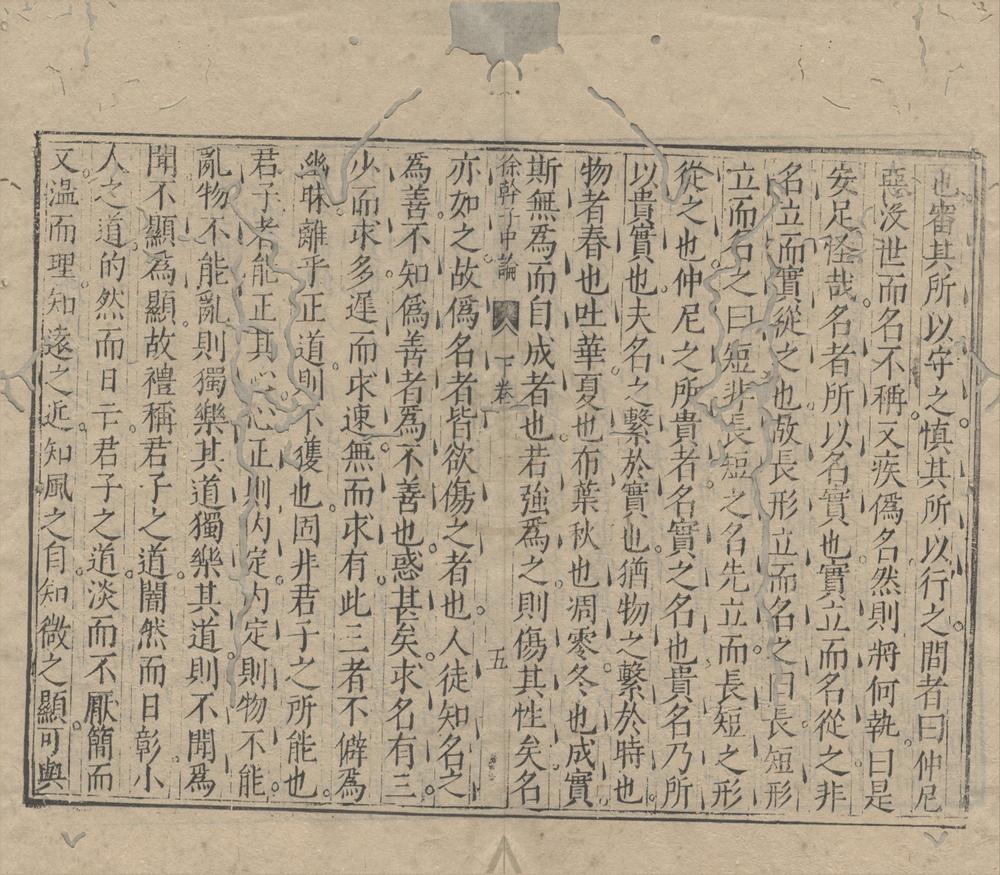 也審其所以守之慎其所以行之問者曰仲尼
惡沒世而名不稱又疾偽名然則將何執曰是
安足怪哉名者所以名實也實立而名從之非
名立而實從之也故長形立而名之曰長短形
立而名之曰短非長短之名先立而長短之形
從之也仲尼之所貴者名實之名也貴名乃所
以貴實也夫名之繫於實也猶物之繫於時也
物者春也吐華夏也布葉秋也凋零冬也成實
斯無為而自成者也若強為之則傷其性矣名
徐幹子中論 下卷 五
亦如之故偽名者皆欲傷之者也人徒知名之
為善不知偽善者為不善也惑甚矣求名有三
少而求多遲而求速無而求有此三者不僻為
幽昧離乎正道則不獲也固非君子之所能也
君子者能正其心心正則內定內定則物不能
亂物不能亂則獨樂其道獨樂其道則不聞為
聞不顯為顯故禮稱君子之道闇然而日彰小
人之道的然而日亡君子之道淡而不厭簡而
文溫而理知遠之近知風之自知微之顯可與